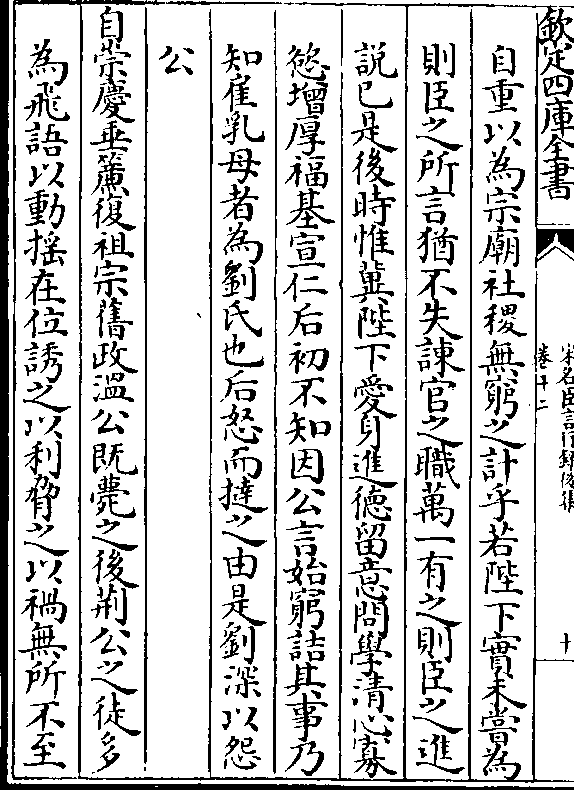 欽定四庫全書
宋名臣言行錄後集
卷十二
十
自重以為宗廟社稷無窮之計乎若陛下實未嘗為
則臣之所言猶不失諫官之職萬一有之則臣之進
說已是後時惟冀陛下愛身進德留意問學清心寡
慾增厚福基宣仁后初不知因公言始窮詰其事乃
知雇乳母者為劉氏也后怒而撻之由是劉深以怨
公
自崇慶垂簾復祖宗舊政溫公既薨之後荆公之徒多
為飛語以動揺在位誘之以利脅之以禍無所不至